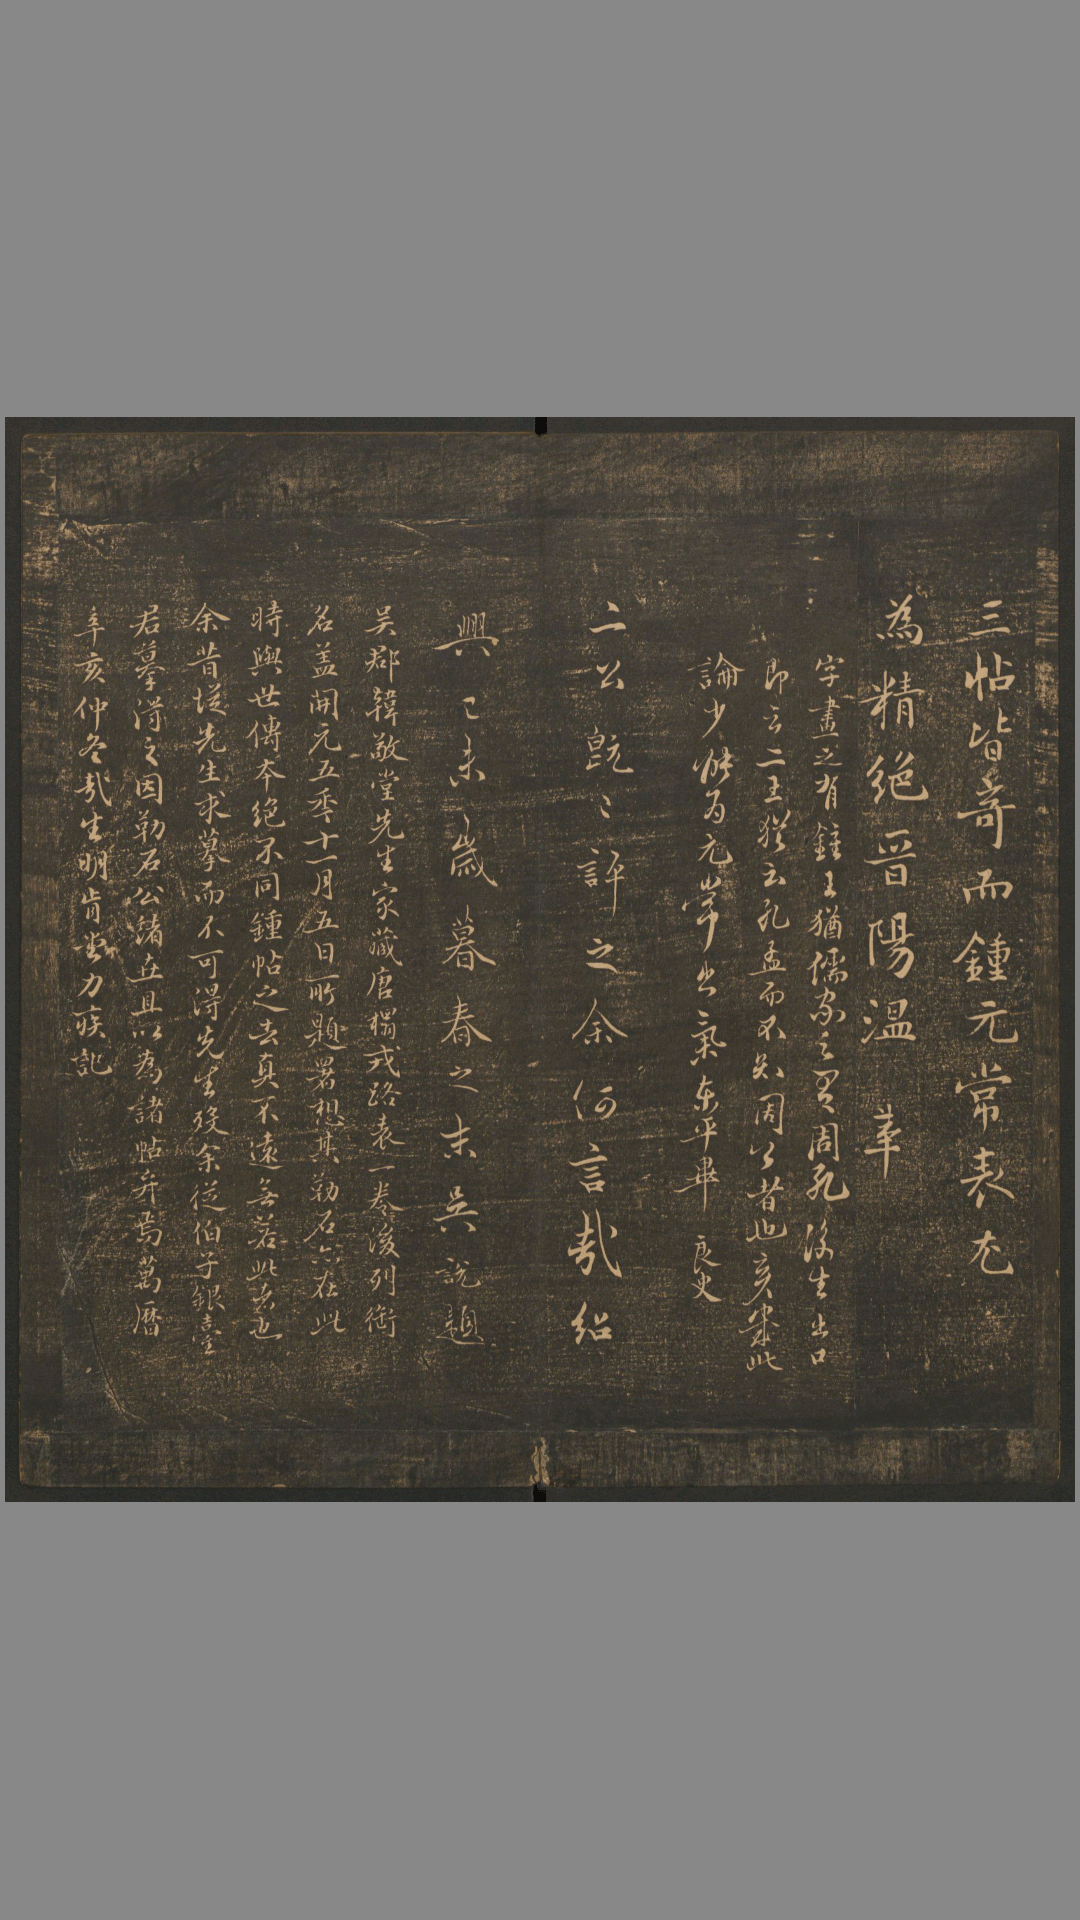 三帖皆奇而鍾元常表尤
為精絕晉陽溫革
字畫之有鍾王猶儒家之有周孔後生出口
即言二王猶云孔孟而不知周公者也亥來此
論少敵為元常出氣東平畢良史
二公既已評之余何言哉紹
興己未歲暮春之末吳說題
吳郡韓敬堂先生家藏唐榻戎路表一卷後列銜
名蓋開元五年十一月五日所題署想其勒石亦在此
時與世傳本絕不同鍾帖之去真不遠無若此者也
余昔從先生求摹而不可得先生歿余從伯子銀臺
君摹得之因勒石公諸世且以為諸帖弁焉萬曆
辛亥仲冬哉生明肯堂力疾記